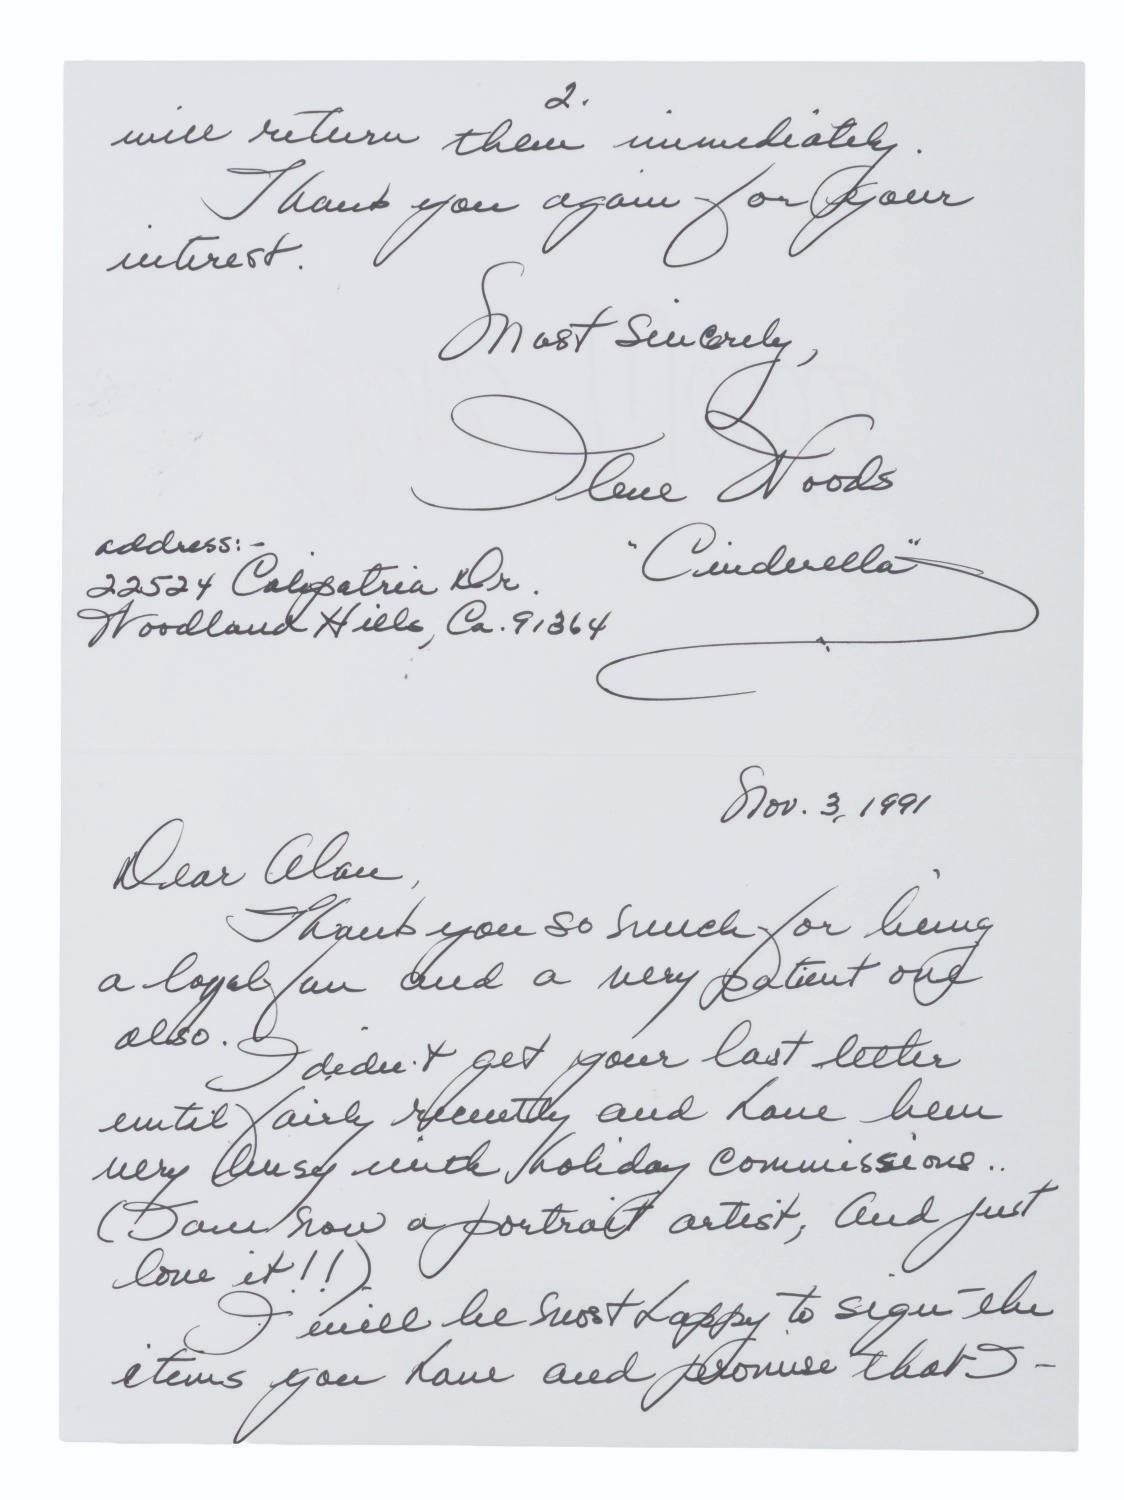 Nov. 3, 1991
Dear Alan,
Thank you so much for being
a loyal fan and a very patient one
also.
I didn't get your last letter
until fairly recently and have been
very busy with holiday commissions..
(I am now a portrait artist, and just
love it!!)
I will be most happy to sign the
items you have and promise that I -
2.
will return them immediately.
Thank you again for your
interest.
Most Sincerely,
Ilene Woods
"Cinderella"
address:-
22524 Calipatria Dr.
Woodland Hills, Ca. 91364